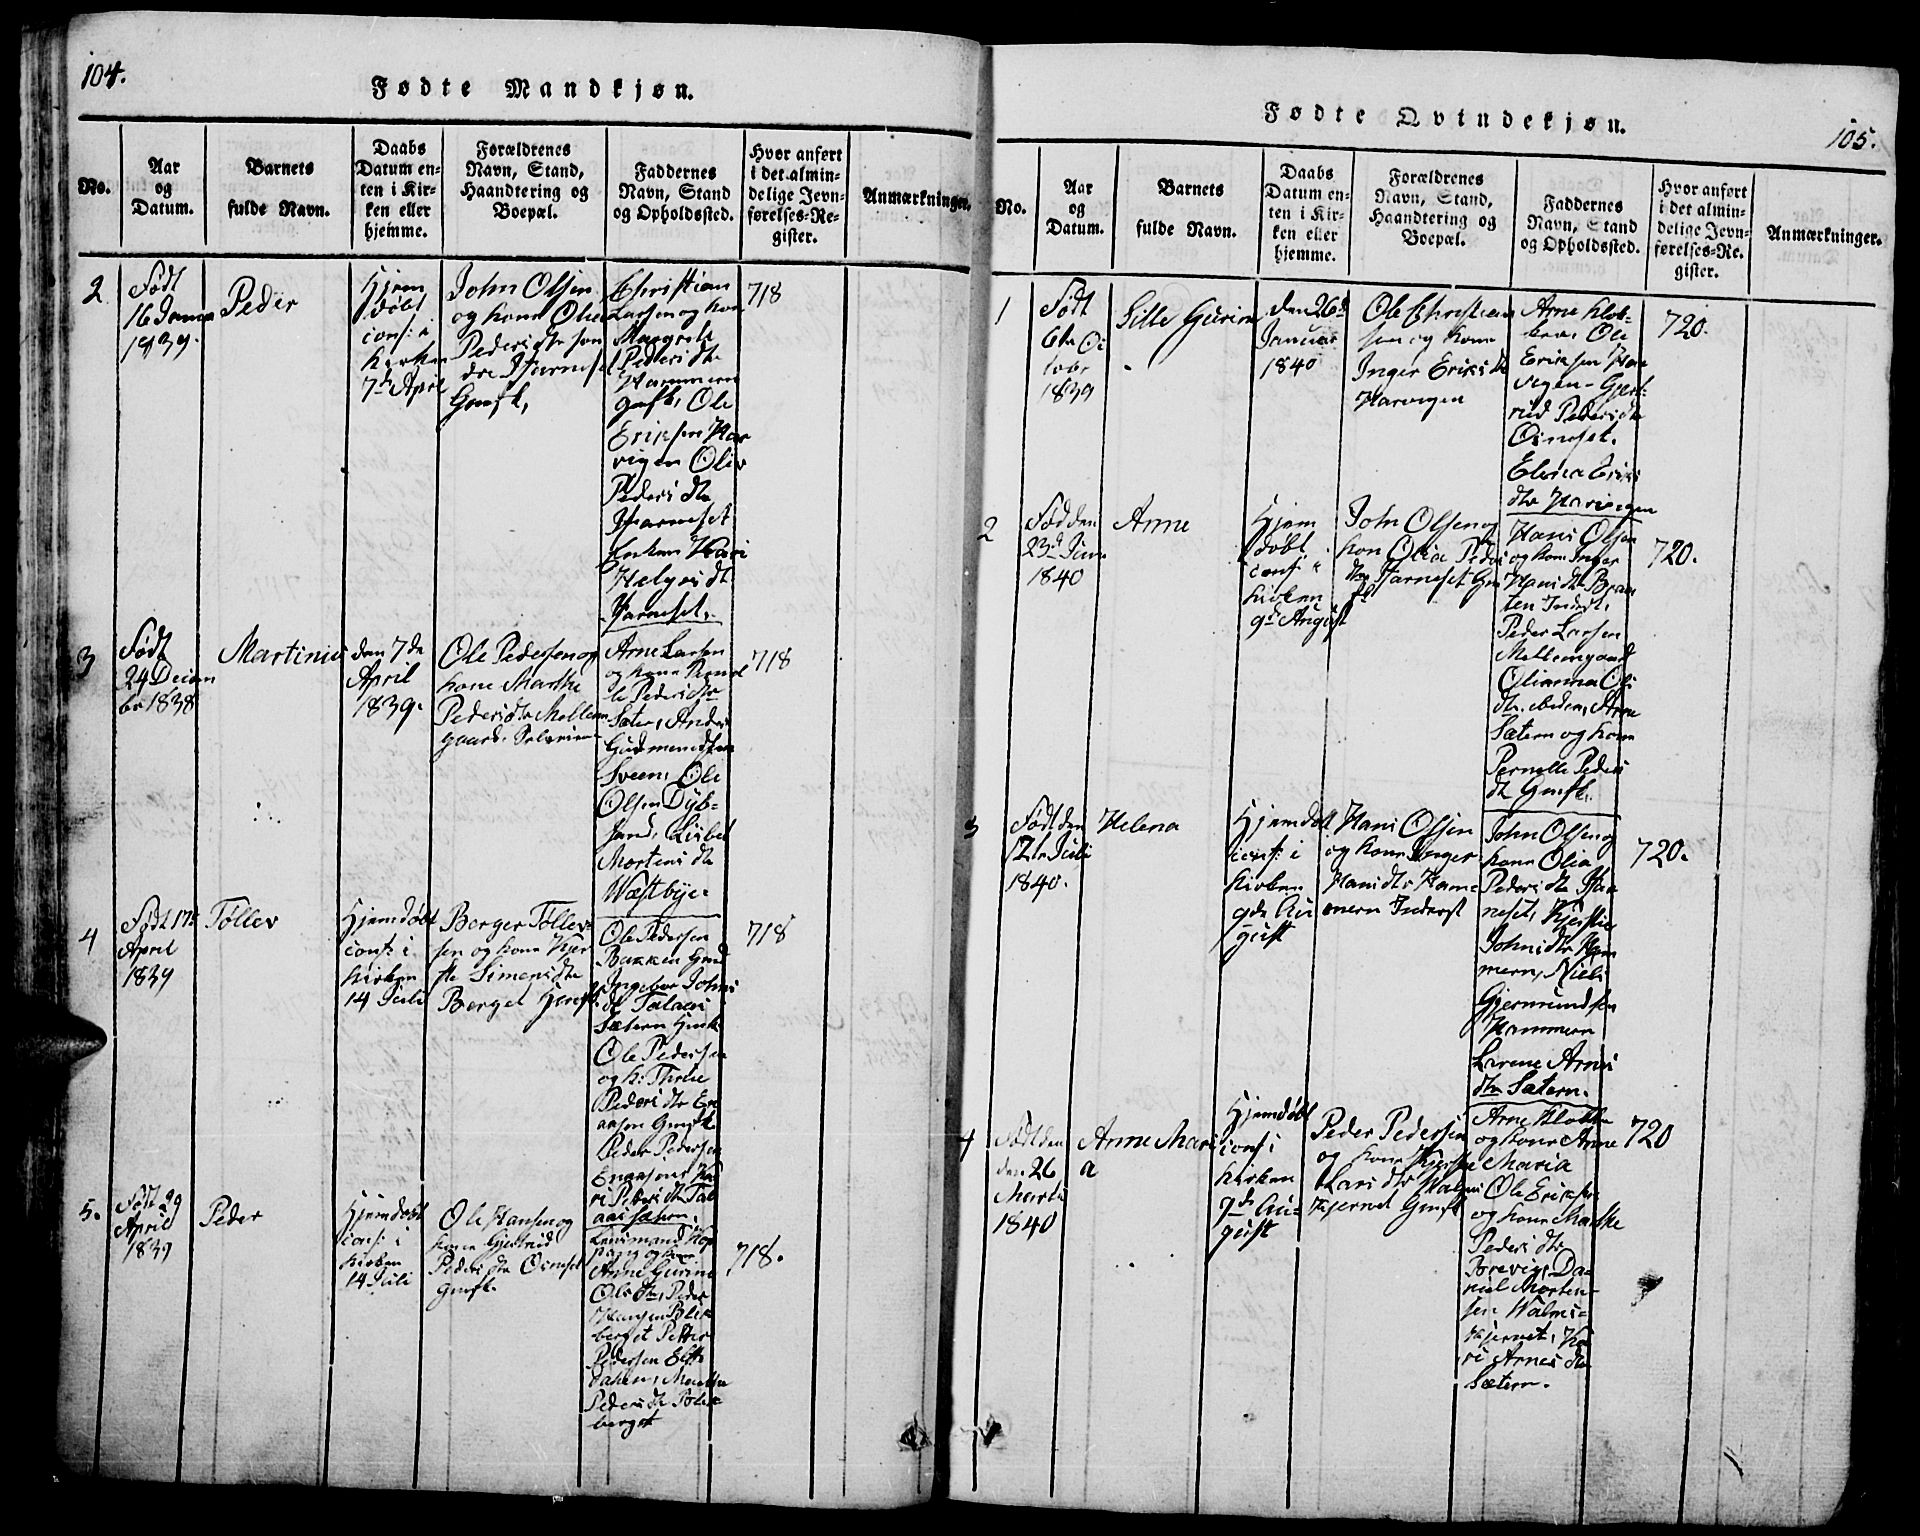 104.
Fødte Mandkjøn.
No.
Aar
og
Datum.
Barnets
fulde Navn.
Daabs
Datum en-
ten i Kir-
ken eller
hjemme.
Forældrenes
Navn, Stand,
Haandtering og
Boepæl.
Faddernes
Navn, Stand
og Opholdssted.
Hvor anført
i det almin-
delige Jevn-
førelses-Re-
gister.
Anmærkninger.
2
Født
16 Janua
1839.
Peder
Hjem
døbt
conf: i
Kirken
7de April
John Olsen
og kone Olia
Pedersdtr
Christian
Larsen og kone
Margrete
Pedersdtr
Hammern
Ole
Eriksen Har
vigen Oliv
Pedersdtr
Kari
Helgesdt
718
3
Født
24 Decem
br 1838
Martinus
den 7de
April
1839.
Ole Pedersen og
kone Marthe
Pedersdtr Mellem
gaard.
Arne Larsen
og kone
Pedersdtr
Sæter, Anders
Gudmundsen
Sveen, Ole
Olsen Dyb-
sand, Lisbet
Mortensdtr
Wæstbye.
718
4
Født 17de
April
1839
Tøllev
Hjemdøbt
conf: i
Kirken
14 Juli
Berger Tøllev-
sen og kone Kjer
ste Simensdtr
Berget
Ole Pedersen
Bakken
Ingebor Johns
dt
Sætern
Ole Pedersen
og k:
Pedersdtr
Peder Pedersen
718
5.
Født 29
April
1839
Peder
Hjemdøbt
conf: i
Kirken
14 Juli
Ole Hansen og
kone Gjertrud
Pedersdtr Oimset
Lensmand Kop
pang og kone
Anne Gurine
Olsdtr, Peder
Hansen Blik
berget Petter
Pedersen
dahlen, Marthe
Pedersdtr Blik
berget
718.
105.
Fødte Qvindekjøn.
No.
Aar
og
Datum.
Barnets
fulde Navn.
Daabs
Datum en-
ten i Kir-
ken eller
hjemme.
Forældrenes
Navn, Stand,
Haandtering og
Boepæl.
Faddernes
Navn, Stand
og Opholdssted.
Hvor anført
i det almin-
delige Jevn-
førelses-Re-
gister.
Anmærkninger.
1
Født
6te Oc
tobr
1839
Sille Gurine
den 26de
Januar
1840
Ole Christian
sen og kone
Inger Eriksdt
Harvigen
Arne Klok-
ken, Ole
Eriksen Har
vigen - Gjert-
rud Pedersdtr
Oimset.
Elena Eriks
dtr Harvigen
720.
2
Fød den
23de Juni
1840
Anne
Hjem
døbt
conf i
Kirken
9de August
John Olsen og
kon Olia Peders
dtr
Hans Olsen
og kone Inger
Hansdtr Braa
ten Inderst,
Peder Larsen
Mellemgaard
Olianna Ols
dtr. ibiden, Arne
Sætern og kone
Pernelle Peders
dt
720.
3
Født den
12te Juli
1840.
Helena
Hjemdøbt
conf: i
Kirken
9de Au
gust
Hans Olsen
og kone Inger
Hansdtr Ham-
mern Inderst
John Olsen og
kone Olia
Pedersdtr
Kjerstie
Johnsdtr Ham
mern, Niels
Gjermundsen
Hammern
Lirene Arnes
dtr Sætern.
720.
4
Født den
den 26
Marts
1840
Anne Mari
a
Hjemdøbt
conf i
Kirken
9de Au-
gust
Peder Pedersen
og kone Kjerstie
Larsdtr Walmes
Kjernet
Arne Klokken
og kone Anne
Maria
Ole Eriksen
og kone Marthe
Pedersdtr
Borevig, Da-
niel Morten-
sen Walmes-
kjernet, Ka
ri Arnesdtr
Sætern.
720